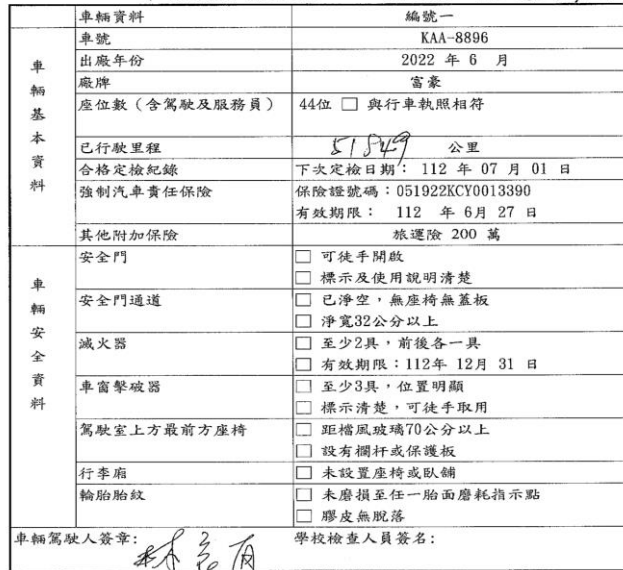 車輛資料 編號一
車號 KAA-8896
出廠年份 2022 年 6 月
廠牌 富豪
座位數（含駕駛及服務員） 44位 □ 與行車執照相符
已行駛里程 51849 公里
合格定檢紀錄 下次定檢日期： 112 年 07 月 01 日
強制汽車責任保險 保險證號碼：051922KCY0013390
有效期限： 112 年 6月 27 日
其他附加保險 旅運險 200 萬
車輛基本資料
安全門 □ 可徒手開啟
□ 標示及使用說明清楚
安全門通道 □ 已淨空，無座椅無蓋板
□ 淨寬32公分以上
滅火器 □ 至少2具，前後各一具
□ 有效期限：112年 12月 31 日
車窗擊破器 □ 至少3具，位置明顯
□ 標示清楚，可徒手取用
駕駛室上方最前方座椅 □ 距檔風玻璃70公分以上
□ 設有欄杆或保護板
行李廂 □ 未設置座椅或臥舖
輪胎胎紋 □ 未磨損至任一胎面磨耗指示點
□ 膠皮無脫落
車輛安全資料
車輛駕駛人簽章： 林 有 學校檢查人員簽名：